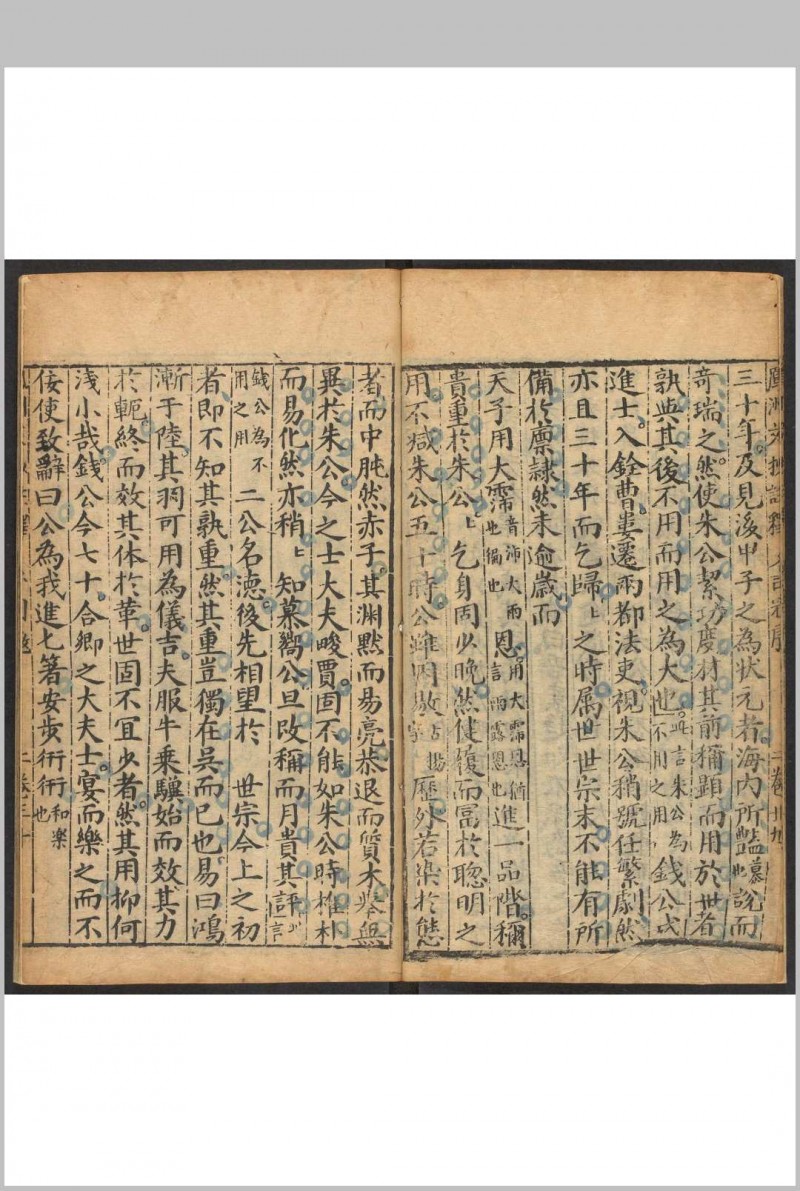 三十年及見後甲子之為狀元者海內所豔慕也說而
奇瑞之然使朱公絜功度材其前稱顯而用於世者
孰與其後不用而用之為大也此言朱公為不用之用錢公成
進士入銓曹婁遷兩都法吏視朱公稍號任繁劇然
亦且三十年而乞歸上之時属世世宗末不能有所
備於禀隷然未逾歲而
天子用大霈音沛大雨也徧也恩用大霈恩猶言雨露恩也進一品階稱
貴重於朱公上乞身固少晚然健履而冨於聰明之
用不減朱公五十時公雖因歷外若染於態
者而中肫然赤子其渊默而易亮恭退而質木舉無
異於朱公今之士大夫畯賈固不能如朱公時椎朴
而易化然亦稍上知慕嚮公旦改稱而月貴其評此言
錢公為不用之用二公名德後先相望於世宗今上之初
者即不知其孰重然其重豈獨在吳而已也易曰鴻
漸于陸其羽可用為儀吉夫服牛乘驥始而效其力
於軛終而效其体於華世固不冝少者然其用抑何
浅小哉錢公今七十合卿之大夫士宴而樂之而不
佞使致辭曰公為我進七箸安步衎衎和樂也
二卷三十